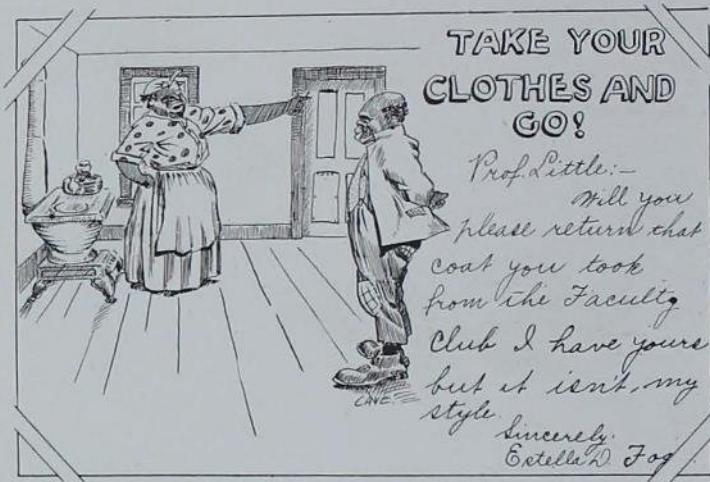 TAKE YOUR
CLOTHES AND
GO!
Prof. Little:-
Will you
please return that
coat you took
from the Faculty
Club I have yours
but it isn't, my
style.
Sincerely.
Estella D. Fog
CAVE.